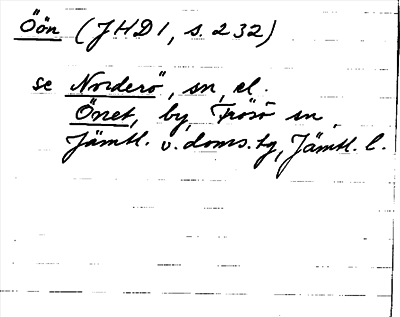 Öön (JHD 1, s. 232)
se Norderö, sn, el.
Önet, by, Frösö sn,
Jämtl. v. doms.tg, Jämtl. l.